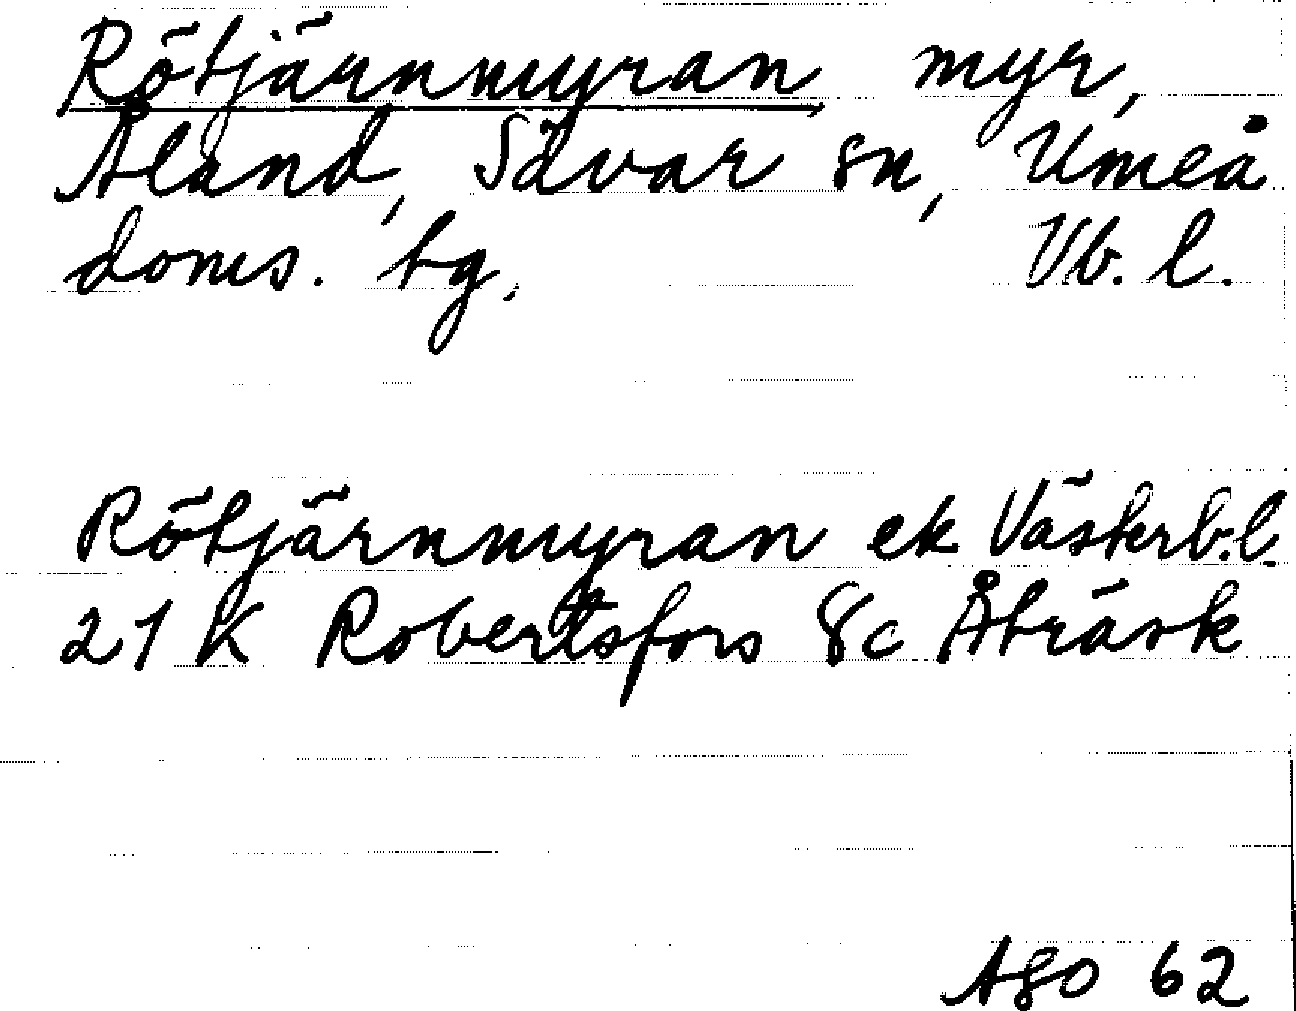 Rötjärnmyran myr,
Åland, Sävar sn, Umeå
doms. tg. Vb. l.
Rötjärnmyran ek Västerb.l.
21 K Robertsfors 8c Åträsk
ASO 62